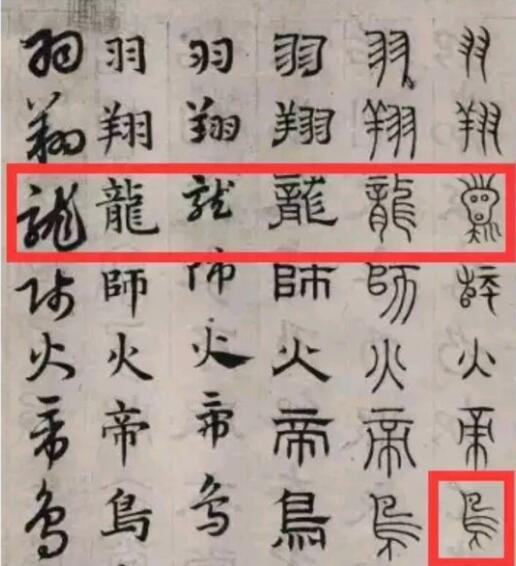 羽翔龍師火帝鳥
羽翔龍師火帝鳥
羽翔龍師火帝鳥
羽翔龍師火帝鳥
羽翔龍師火帝鳥
羽翔龍師火帝鳥